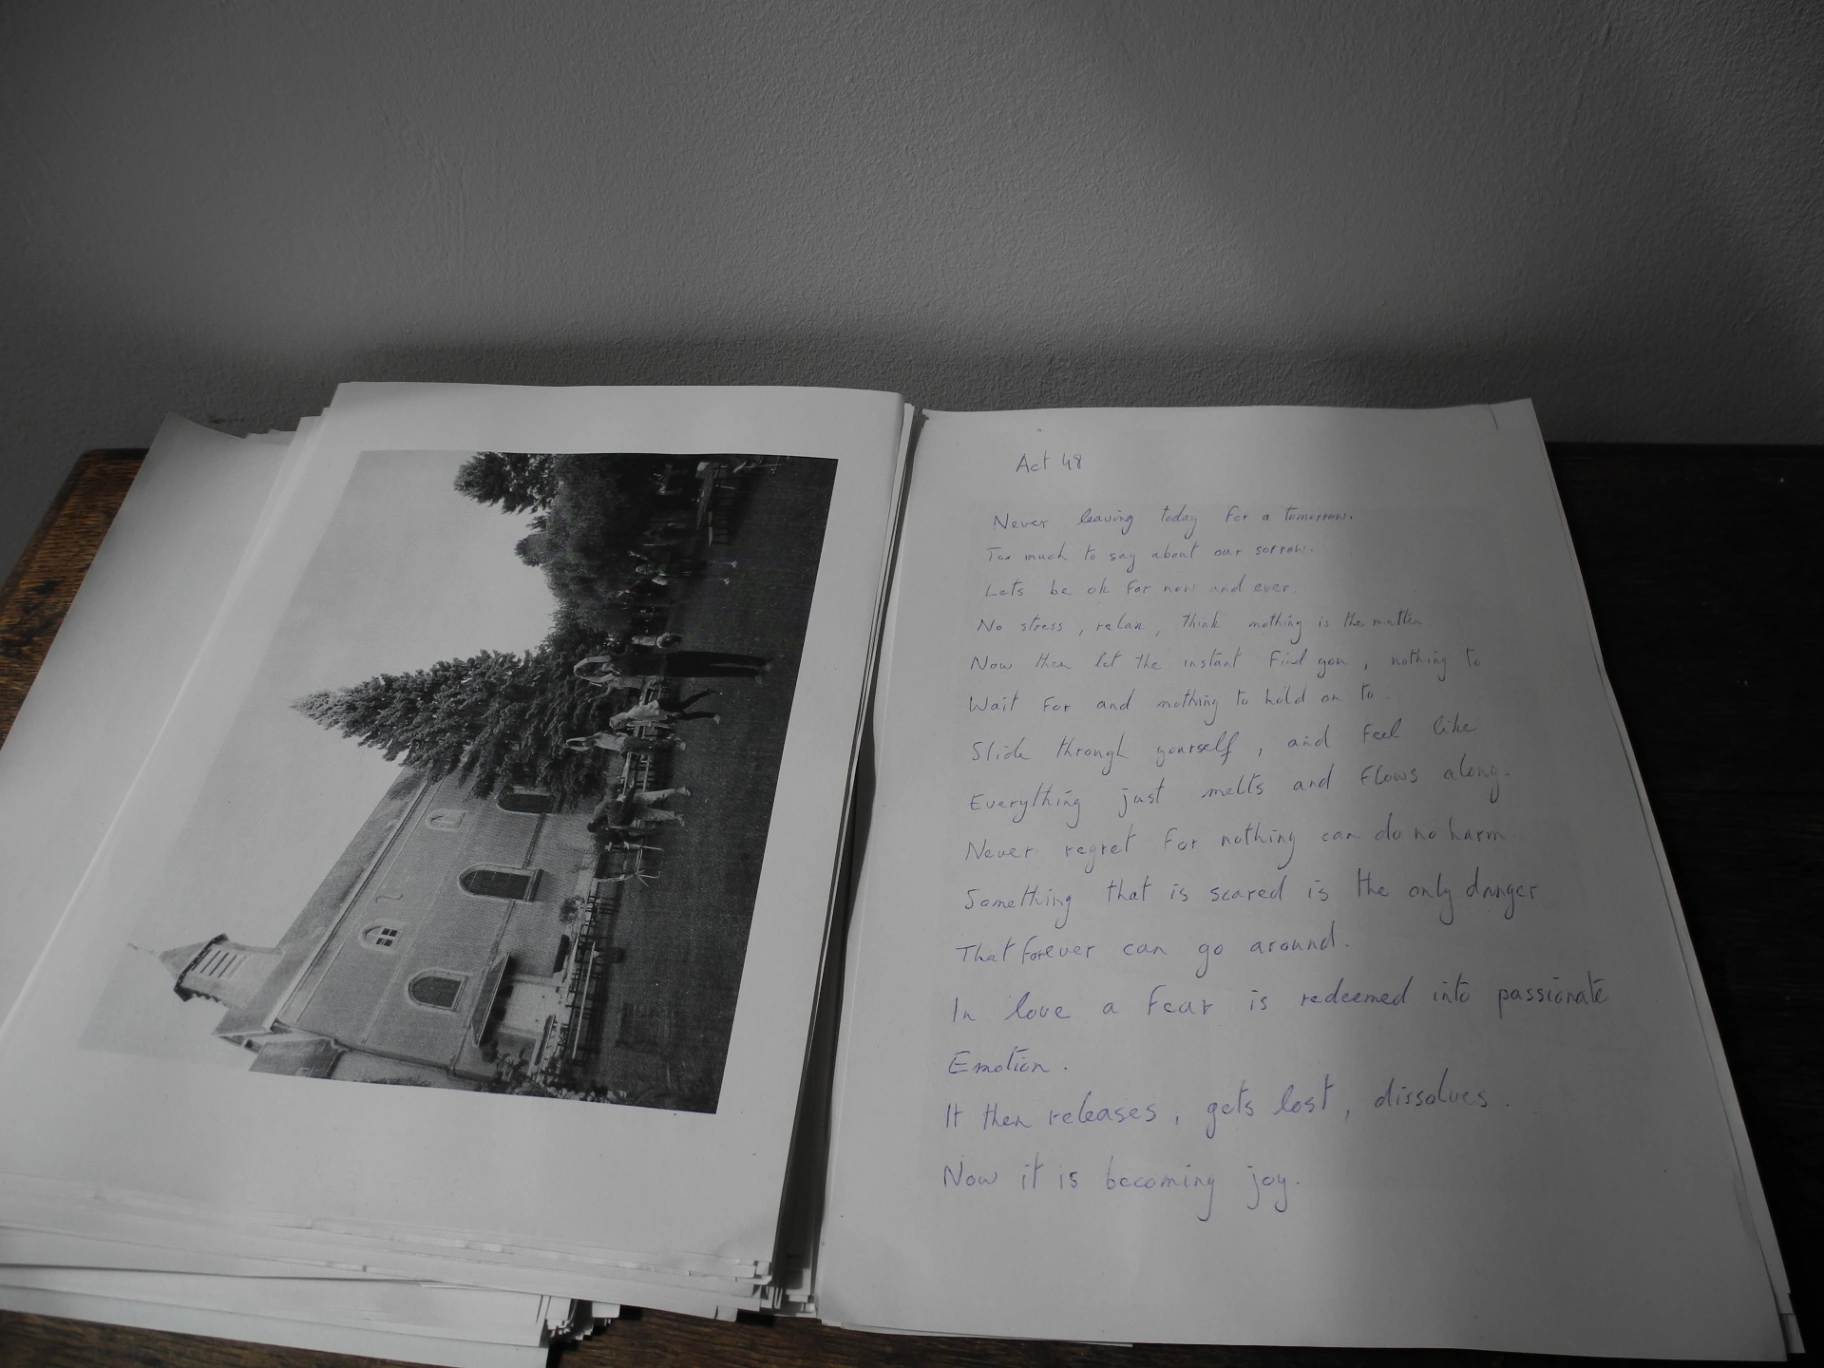 Act 48
Never leaving today for a tomorrow.
Too much to say about our sorrow.
Lets be ok for now and ever.
No stress, relax, think nothing is the matter
Now then let the instant find you, nothing to
Wait for and nothing to hold on to.
Slide through yourself, and feel like
Everything just melts and flows along.
Never regret for nothing can do no harm
Something that is scared is the only danger
That forever can go around.
In love a fear is redeemed into passionate
Emotion.
It then releases, gets lost, dissolves.
Now it is becoming joy.